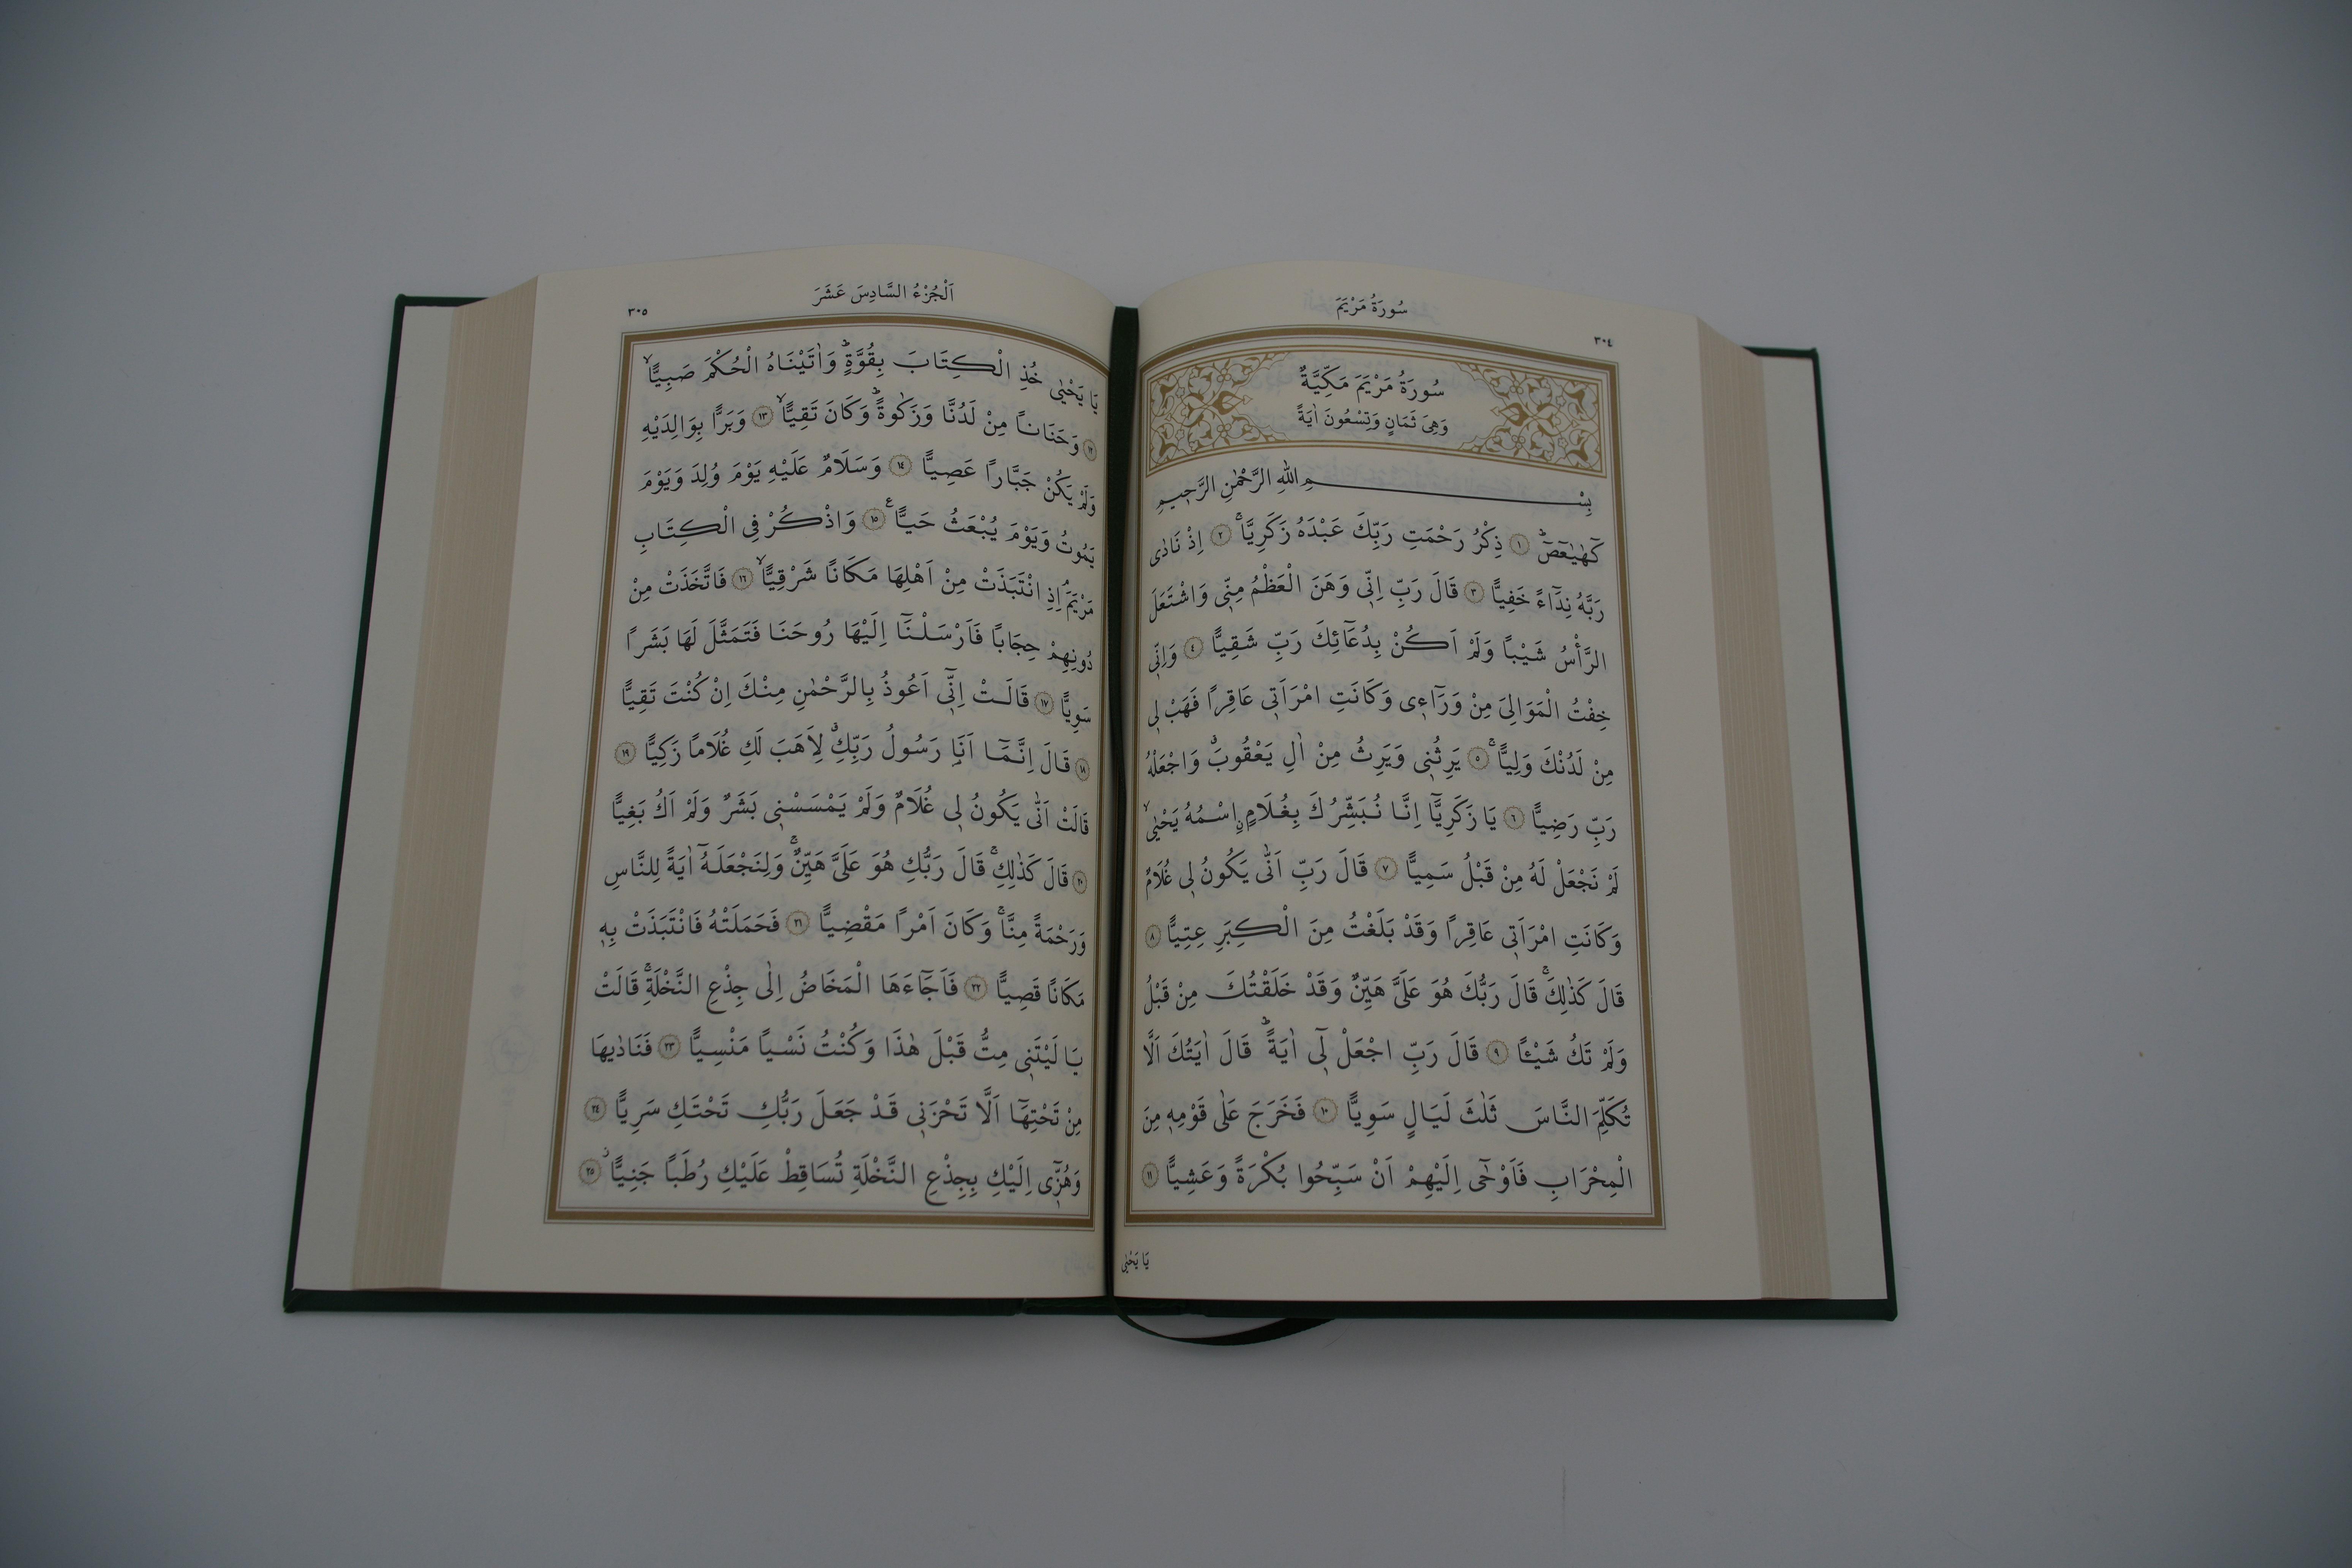 سُورَةُ مَرْيَمَ
٣٠٤
سُورَةُ مَرْيَمَ مَكِّيَّةٌ
وَهِىَ ثَمَانٍ وَتِسْعُونَ اٰيَةً
بِسْمِ اللّٰهِ الرَّحْمٰنِ الرَّحِيمِ
كٓهٰيٰعٓصٓۜ ﴿١﴾ ذِكْرُ رَحْمَتِ رَبِّكَ عَبْدَهُ زَكَرِيَّاۚ ﴿٢﴾ اِذْ نَادٰى
رَبَّهُ نِدَٓاءً خَفِيًّا ﴿٣﴾ قَالَ رَبِّ اِنّ۪ى وَهَنَ الْعَظْمُ مِنّ۪ى وَاشْتَعَلَ
الرَّأْسُ شَيْبًا وَلَمْ اَكُنْ بِدُعَٓائِكَ رَبِّ شَقِيًّا ﴿٤﴾ وَاِنّ۪ى
خِفْتُ الْمَوَالِىَ مِنْ وَرَٓاء۪ى وَكَانَتِ امْرَاَت۪ى عَاقِرًا فَهَبْ ل۪ى
مِنْ لَدُنْكَ وَلِيًّاۚ ﴿٥﴾ يَرِثُن۪ى وَيَرِثُ مِنْ اٰلِ يَعْقُوبَۗ وَاجْعَلْهُ
رَبِّ رَضِيًّا ﴿٦﴾ يَا زَكَرِيَّٓا اِنَّا نُبَشِّرُكَ بِغُلَامٍۨ اسْمُهُ يَحْيٰىۙ
لَمْ نَجْعَلْ لَهُ مِنْ قَبْلُ سَمِيًّا ﴿٧﴾ قَالَ رَبِّ اَنّٰى يَكُونُ ل۪ى غُلَامٌ
وَكَانَتِ امْرَاَت۪ى عَاقِرًا وَقَدْ بَلَغْتُ مِنَ الْكِبَرِ عِتِيًّا ﴿٨﴾
قَالَ كَذٰلِكَۚ قَالَ رَبُّكَ هُوَ عَلَىَّ هَيِّنٌ وَقَدْ خَلَقْتُكَ مِنْ قَبْلُ
وَلَمْ تَكُ شَيْـًٔا ﴿٩﴾ قَالَ رَبِّ اجْعَلْ ل۪ٓى اٰيَةًۜ قَالَ اٰيَتُكَ اَلَّا
تُكَلِّمَ النَّاسَ ثَلٰثَ لَيَالٍ سَوِيًّا ﴿١٠﴾ فَخَرَجَ عَلٰى قَوْمِه۪ مِنَ
الْمِحْرَابِ فَاَوْحٰٓى اِلَيْهِمْ اَنْ سَبِّحُوا بُكْرَةً وَعَشِيًّا ﴿١١﴾
يَا يَحْيٰى
اَلْجُزْءُ السَّادِسَ عَشَرَ
٣٠٥
يَا يَحْيٰى خُذِ الْكِتَابَ بِقُوَّةٍۜ وَاٰتَيْنَاهُ الْحُكْمَ صَبِيًّاۙ
﴿١٢﴾ وَحَنَانًا مِنْ لَدُنَّا وَزَكٰوةًۜ وَكَانَ تَقِيًّاۙ ﴿١٣﴾ وَبَرًّا بِوَالِدَيْهِ
وَلَمْ يَكُنْ جَبَّارًا عَصِيًّا ﴿١٤﴾ وَسَلَامٌ عَلَيْهِ يَوْمَ وُلِدَ وَيَوْمَ
يَمُوتُ وَيَوْمَ يُبْعَثُ حَيًّا ع ﴿١٥﴾ وَاذْكُرْ فِى الْكِتَابِ
مَرْيَمَۢ اِذِ انْتَبَذَتْ مِنْ اَهْلِهَا مَكَانًا شَرْقِيًّاۙ ﴿١٦﴾ فَاتَّخَذَتْ مِنْ
دُونِهِمْ حِجَابًا فَاَرْسَلْنَٓا اِلَيْهَا رُوحَنَا فَتَمَثَّلَ لَهَا بَشَرًا
سَوِيًّا ﴿١٧﴾ قَالَتْ اِنّ۪ٓى اَعُوذُ بِالرَّحْمٰنِ مِنْكَ اِنْ كُنْتَ تَقِيًّا
﴿١٨﴾ قَالَ اِنَّمَٓا اَنَا۬ رَسُولُ رَبِّكِۗ لِاَهَبَ لَكِ غُلَامًا زَكِيًّا ﴿١٩﴾
قَالَتْ اَنّٰى يَكُونُ ل۪ى غُلَامٌ وَلَمْ يَمْسَسْن۪ى بَشَرٌ وَلَمْ اَكُ بَغِيًّا
﴿٢٠﴾ قَالَ كَذٰلِكِۚ قَالَ رَبُّكِ هُوَ عَلَىَّ هَيِّنٌۚ وَلِنَجْعَلَهُٓ اٰيَةً لِلنَّاسِ
وَرَحْمَةً مِنَّاۚ وَكَانَ اَمْرًا مَقْضِيًّا ﴿٢١﴾ فَحَمَلَتْهُ فَانْتَبَذَتْ بِه۪
مَكَانًا قَصِيًّا ﴿٢٢﴾ فَاَجَٓاءَهَا الْمَخَاضُ اِلٰى جِذْعِ النَّخْلَةِۚ قَالَتْ
يَا لَيْتَن۪ى مِتُّ قَبْلَ هٰذَا وَكُنْتُ نَسْيًا مَنْسِيًّا ﴿٢٣﴾ فَنَادٰيهَا
مِنْ تَحْتِهَٓا اَلَّا تَحْزَن۪ى قَدْ جَعَلَ رَبُّكِ تَحْتَكِ سَرِيًّا ﴿٢٤﴾
وَهُزّ۪ٓى اِلَيْكِ بِجِذْعِ النَّخْلَةِ تُسَاقِطْ عَلَيْكِ رُطَبًا جَنِيًّاۘ ﴿٢٥﴾